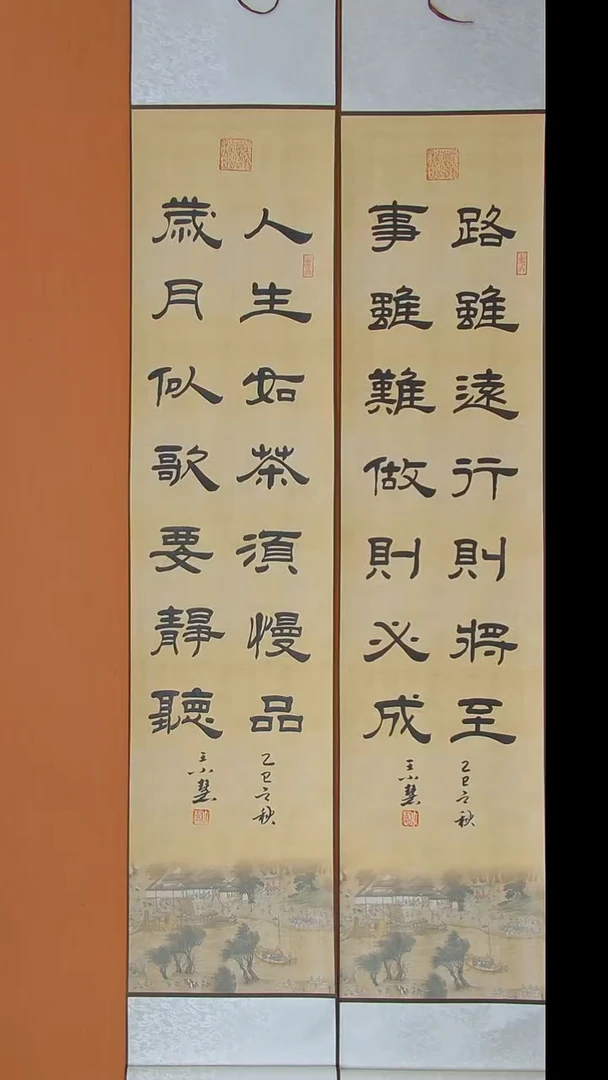 路雖遠行則將至
事雖難做則必成
乙巳立秋
王小慧
人生如茶須慢品
歲月似歌要靜聽
乙巳立秋
王小慧